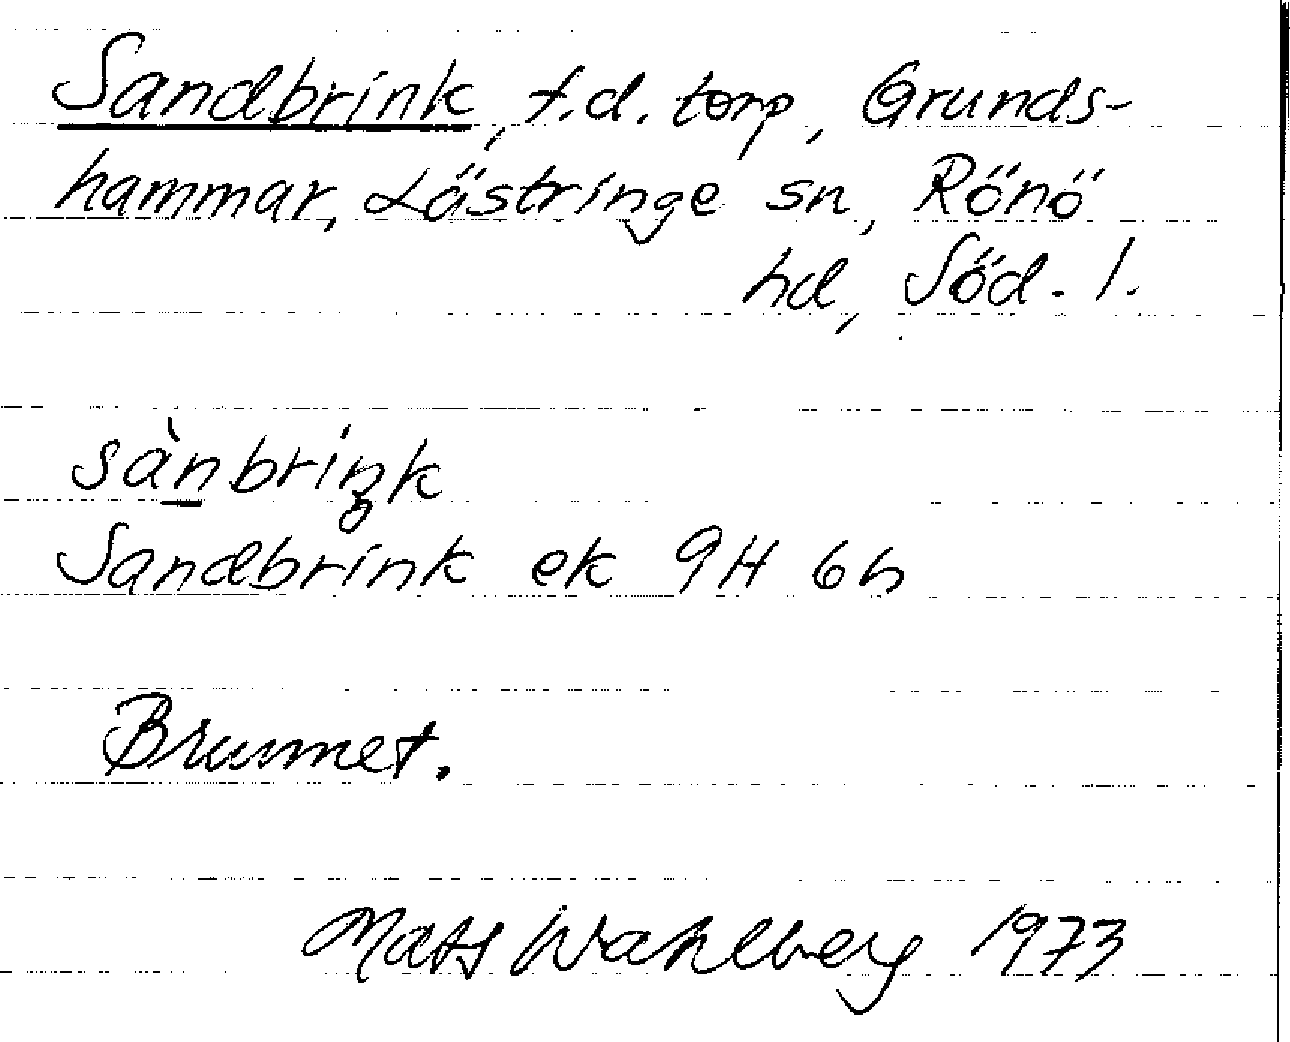 Sandbrink, f.d. torp, Grunds-
hammar, Lästringe sn, Rönö
hd, Söd. l.
sànbriŋk
Sandbrink ek 9H 6h
Brunnet.
Mats Wahlberg 1973